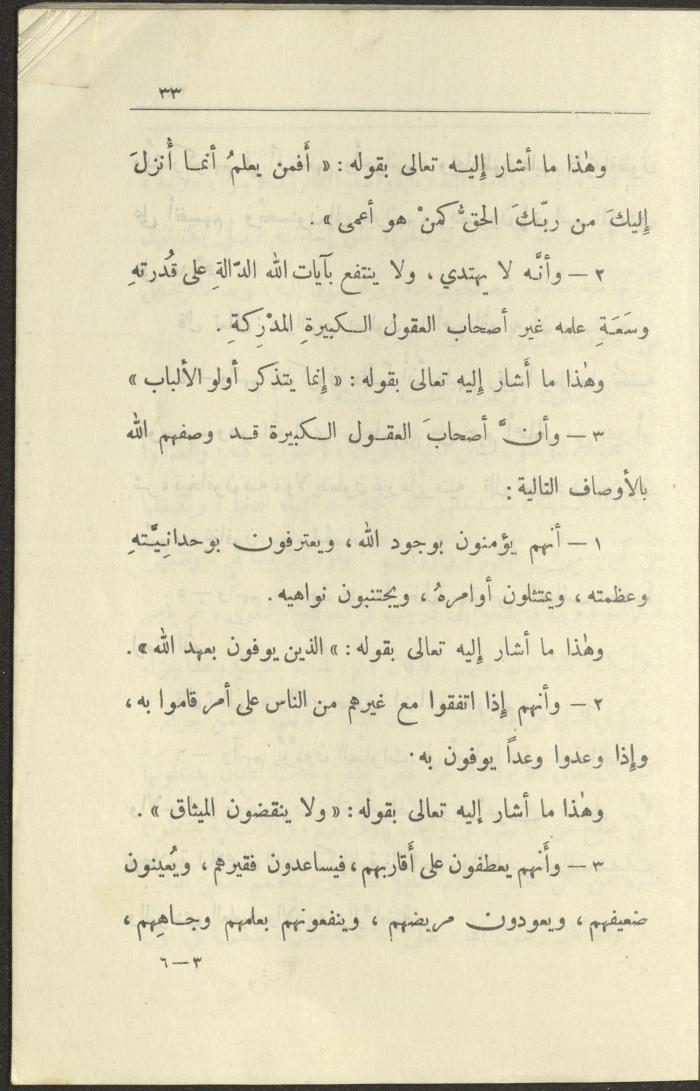 ٣٣
وهٰذا ما أشار إِليه تعالى بقوله : « أَفمن يعلمُ أنما أُنزلَ
إِليكَ من ربّكَ الحقُّ كمنْ هو أعمى » .
٢ – وأنَّه لا يهتدي ، ولا ينتفع بآيات الله الدّالةِ على قُدرتهِ
وسَعَةِ علمه غير أصحاب العقول الكبيرةِ المدْرِكةِ .
وهٰذا ما أَشار إِليه تعالى بقوله : « إِنما يتذكر أولو الألباب »
٣ – وأنَّ أصحابَ العقول الكبيرة قد وصفهم الله
بالأوصاف التالية :
١ – أنهم يؤمنون بوجود الله ، ويعترفون بوحدانِيَّتهِ
وعظمته ، ويمتثلون أوامرهُ ، ويجتنبون نواهيه .
وهٰذا ما أشار إِليه تعالى بقوله : » الذين يوفون بعهد الله » .
٢ – وأنهم إِذا اتفقوا مع غيرهم من الناس على أمر قاموا به ،
وإِذا وعدوا وعداً يوفون به .
وهٰذا ما أشار إليه تعالى بقوله : « ولا ينقضون الميثاق » .
٣ – وأَنهم يعطفون على أَقاربهم ، فيساعدون فقيرهم ، ويُعينون
ضعيفهم ، ويعودون مريضهم ، وينفعونهم بعلمهم وجاهِهم ،
٣–٦